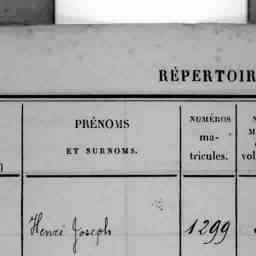 RÉPERTOIR
PRÉNOMS
ET SURNOMS.
NUMÉROS
ma-
tricules.
vol
Henri Joseph
1299